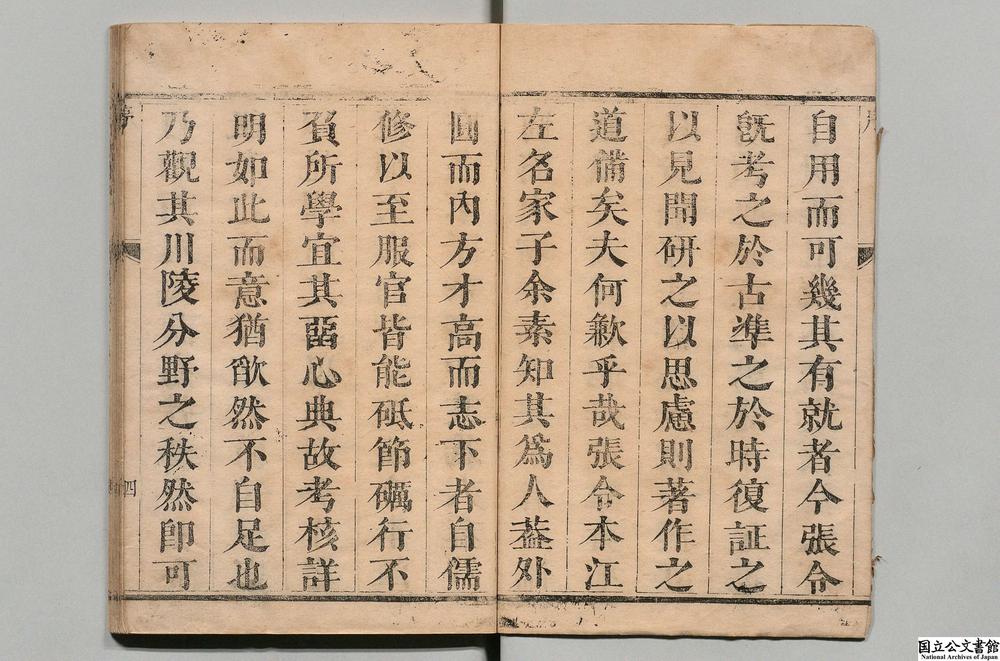 自用而可幾其有就者今張令
旣考之於古準之於時復証之
以見聞研之以思慮則著作之
道備矣夫何歉乎哉張令本江
左名家子余素知其爲人葢外
圓而內方才高而志下者自儒
修以至服官皆能砥節礪行不
負所學宜其畱心典故考核詳
明如此而意猶欿然不自足也
乃觀其川陵分野之秩然卽可
序
四
国立公文書館
National Archives of Japan